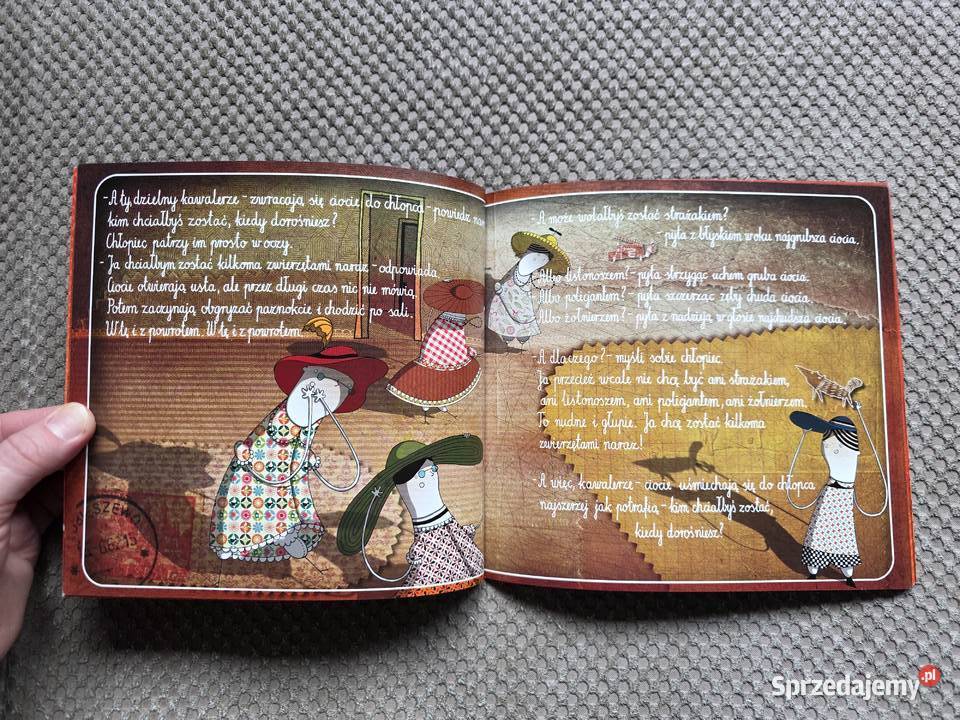 -A ty, dzielny kawalerze - zwracają się ciocie do chłopca - powiedz nam
kim chciałbyś zostać, kiedy dorośniesz?
Chłopiec patrzy im prosto w oczy.
- Ja chciałbym zostać kilkoma zwierzętami naraz - odpowiada.
Ciocie otwierają usta, ale przez długi czas nic nie mówią.
Potem zaczynają obgryzać paznokcie i chodzić po sali.
W tę i z powrotem. W tę i z powrotem.
-A może wolałbyś zostać strażakiem?
- pyta z błyskiem w oku najgrubsza ciocia.
-Albo listonoszem? - pyta strzygąc uchem gruba ciocia.
-Albo policjantem? - pyta szczerząc zęby chuda ciocia.
-Albo żołnierzem? - pyta z nadzieją w głosie najchudsza ciocia.
-A dlaczego? - myśli sobie chłopiec.
Ja przecież wcale nie chcę być ani strażakiem,
ani listonoszem, ani policjantem, ani żołnierzem.
To nudne i głupie. Ja chcę zostać kilkoma
zwierzętami naraz!
-A więc, kawalerze - ciocie uśmiechają się do chłopca
najszerzej jak potrafią - kim chciałbyś zostać,
kiedy dorośniesz?
Sprzedajemy.pl